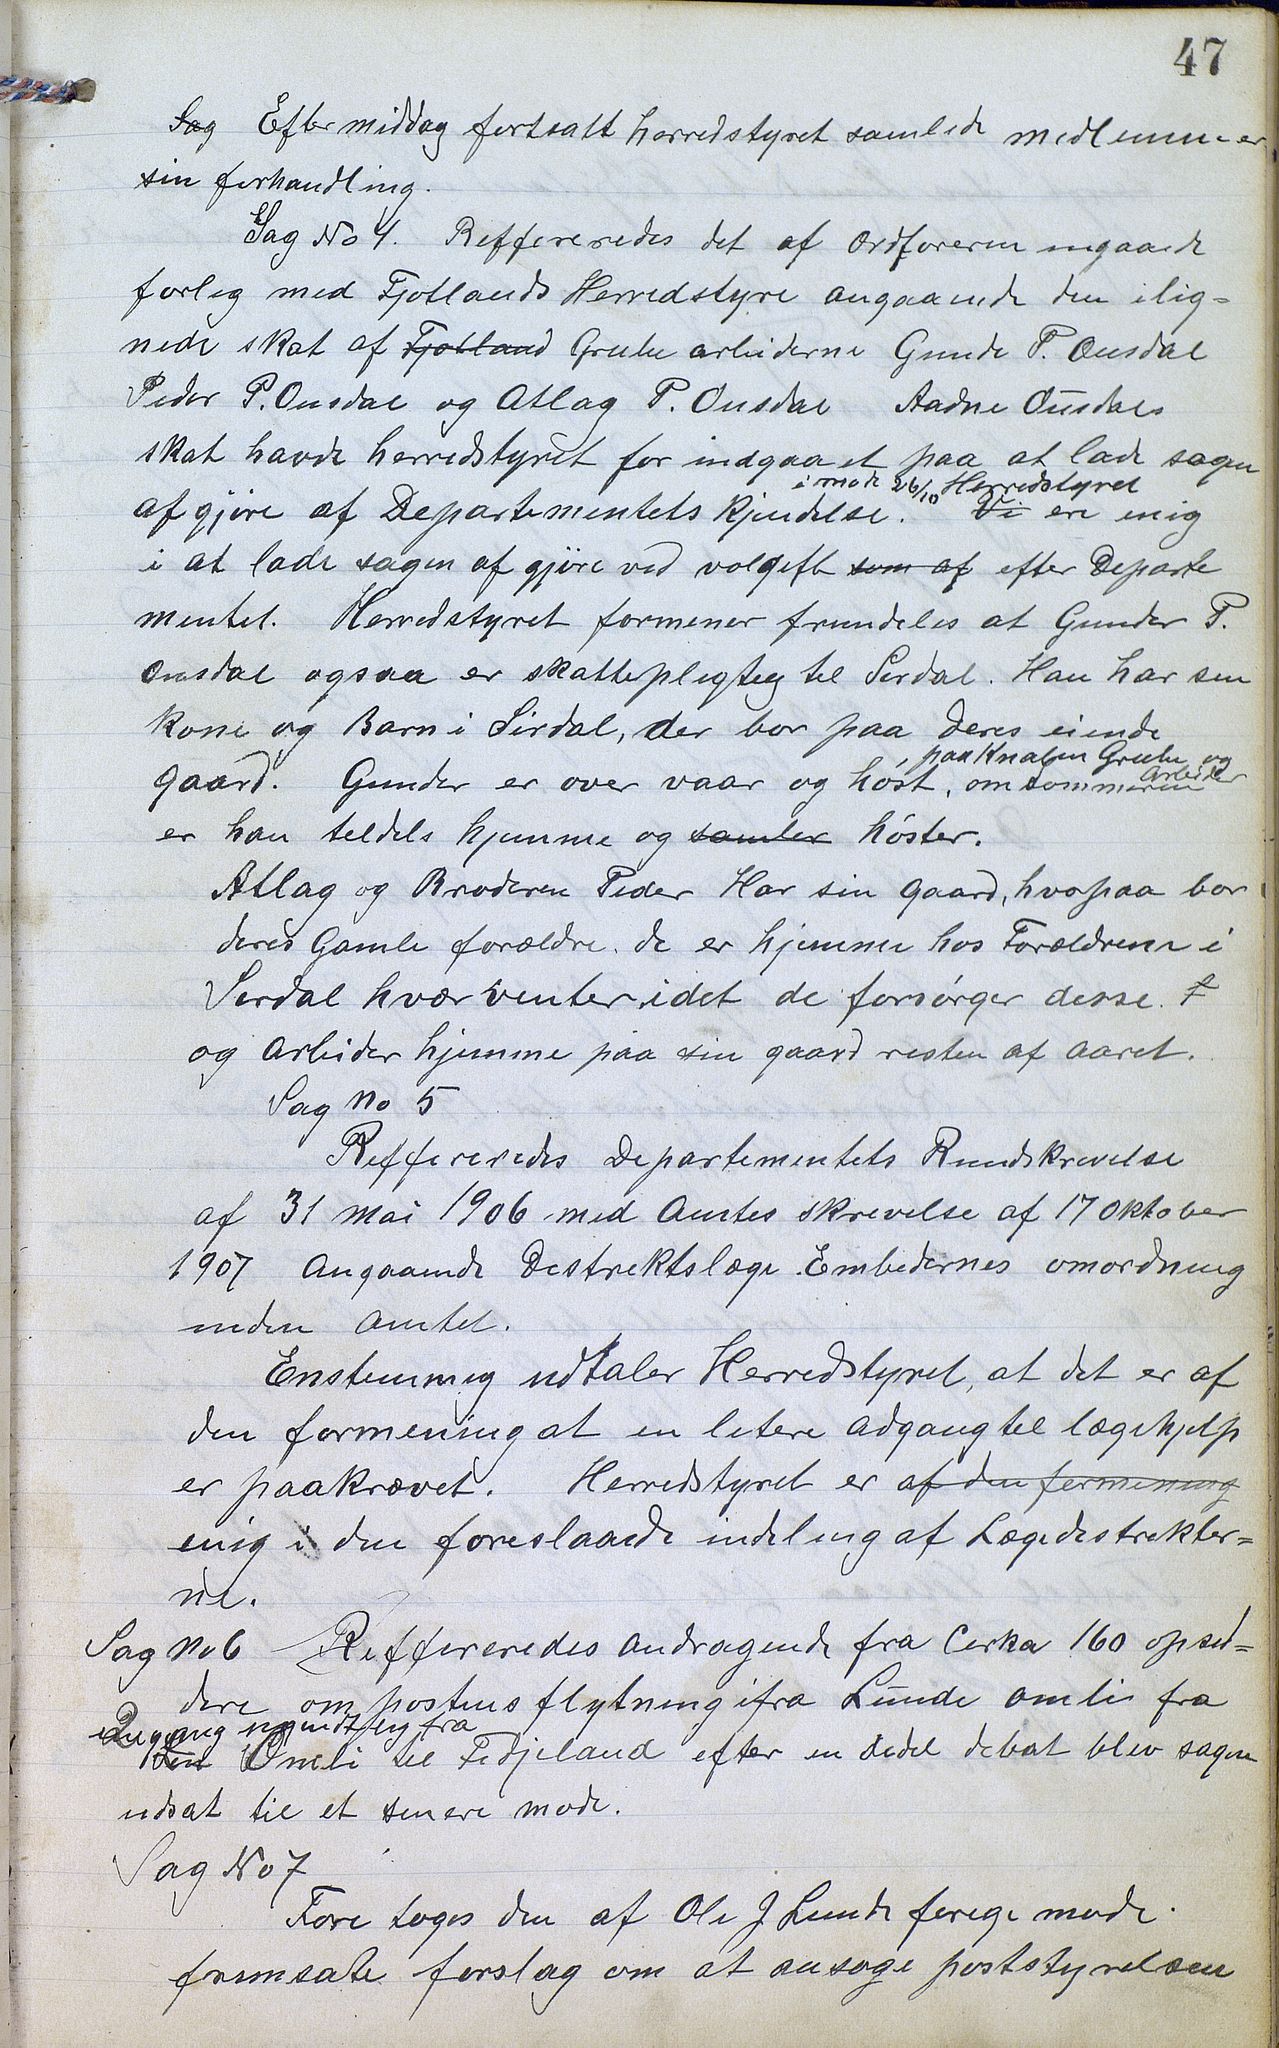 47
Sag Efter middag fortsatt herredstyret samlede medlemmer
sin forhandling.
Sag No 4. Reffereredes det af Ordføreren ingaaede
forlig med Fjotlands Herredstyre angaaende den ilig=
nede skat af Fjotland Grube arbeiderne Gunde P. Ousdal
Peder P. Ousdal og Atlag P. Ousdal Aadne Ousdals
skat havde herredstyret for indgaaet paa at lade sagen
i møde 26/10 Herredstyret
afgjøre af Departementets Kjendelse. Vi ere enig
i at lade sagen af gjøre ved volgift som af efter Departe
mentet. Herredstyret formener fremdeles at Gunder P.
Ousdal ogsaa er skattepligteg til Serdal. Han har sin
Kone og Barn i Sirdal, der bor paa deres eiende
paa Knaben Grube og
gaard. Gunder er over vaar og høst, om sommeren
arbeider
er han teldels hjemme og samler høster.
Atlag og Broderen Peder Har sin Gaard, hvorpaa bor
deres Gamle forældre. de er hjemme hos Forældrene i
Serdal hvær venter, idet de forsørger desse. f
og Arbeider hjemme paa sin gaard resten af aaret.
Sag No 5
Reffereredes Departementets Rundskrevelse
af 31 Mai 1906 med Amtes skrevelse af 17 Oktober
1907 Angaaende Destrektslæge Embedernes omordning
inden Amtet.
Enstemmig udtaler Herredstyret, at det er af
den formening at en letere Adgang til lægehjelp
er paakrævet. Herredstyret er af den formening
enig i den foreslaaede indeling af Lægedestrekter=
ne.
Sag No 6 Reffereredes Andragende fra Cerka 160 opsid=
dere om postens flytning ifra Lunde Omli fra
Omli til Fidjeland efter en Dedel debat blev sagen
udsat til et senere møde.
Sag No 7
Fore toges den af Ole J Lunde forige møde
fremsate forslag om at ansøge poststyrelsen